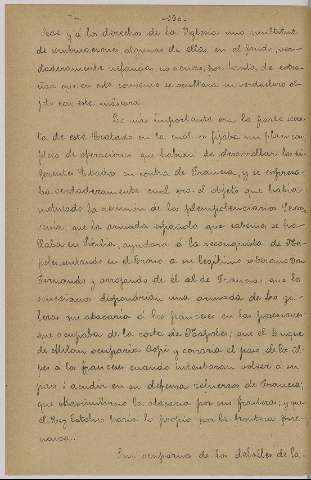 -330-
Sede y á los derechos de la Iglesia una multitud
de combinaciones algunas de ellas, en el fondo, ver-
daderamente no es, por tanto, de extra-
ñar que en este convenio se ocultara su verdadero ob-
jeto con esta máscara.
Lo más importante era la parte secre-
ta de este Tratado en la cual se fijaba un plan com-
pleto de operaciones que habían de desarrollar los di-
ferentes Estados en contra de Francia, y se expresa-
ba verdaderamente cual era el objeto que había
motivado la reunión de los plenipotenciarios
que la armada española que estaba se ha-
llaba en Sicilia, ayudara á la reconquista de Ná-
poles, sentando en el trono a su legítimo soberano Don
Fernando y arrojando de él al de Francia; que los
venecianos dispondrían una armada de galeras
que atacaría á los franceses en las posesiones
que ocupaban de la costa de Nápoles; que el Duque
de Milán ocuparía Asti y cerraría el paso de los Al-
pes á los franceses cuando intentaran volver a su
pais ó acudir en su defensa refuerzos de Francia;
que Maximiliano la atacaría por sus fronteras; y que
el Rey Católico haría lo propio por la frontera pire-
naica.
Sin ocuparme de los detalles de la